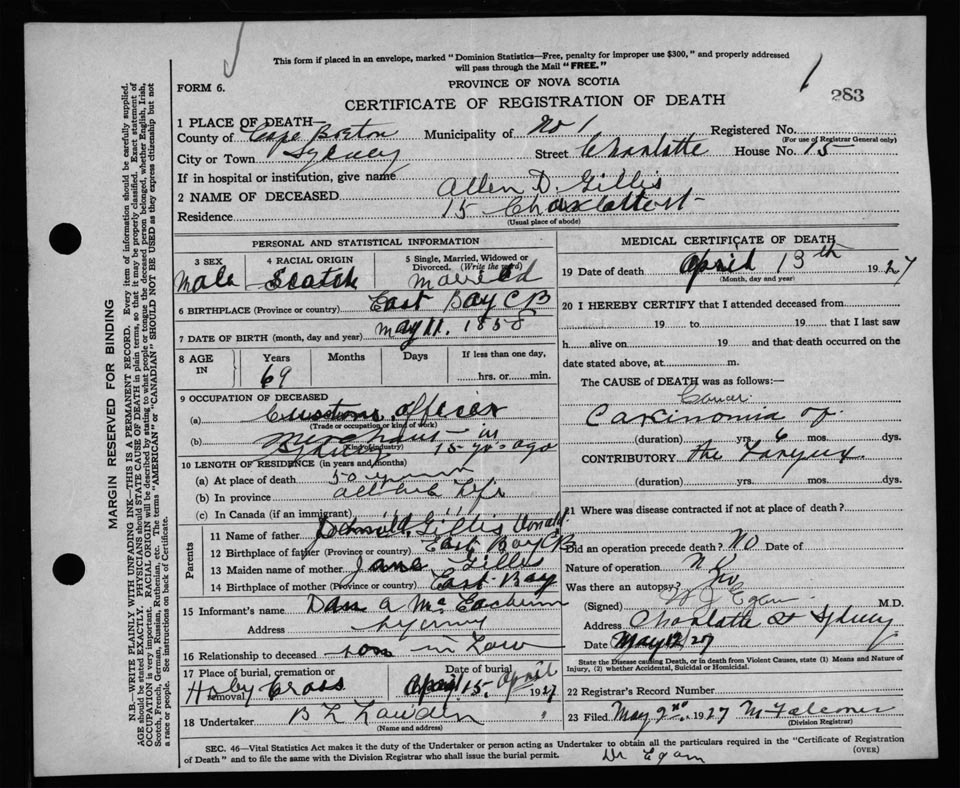 This form if placed in an envelope, marked "Dominion Statistics—Free, penalty for improper use $300," and properly addressed
will pass through the Mail "FREE."
FORM 6.
PROVINCE OF NOVA SCOTIA
283
CERTIFICATE OF REGISTRATION OF DEATH
1 PLACE OF DEATH—
County of Cape Breton Municipality of No 1 Registered No.
(For use of Registrar General only)
City or Town Sydney Street Charlotte House No. 15
If in hospital or institution, give name
2 NAME OF DECEASED Allen D. Gillis
Residence 15 Charlotte st
(Usual place of abode)
PERSONAL AND STATISTICAL INFORMATION
3 SEX Male
4 RACIAL ORIGIN Scotch
5 Single, Married, Widowed or Divorced. (Write the word) Married
6 BIRTHPLACE (Province or country) East Bay C B
7 DATE OF BIRTH (month, day and year) May 11. 1858
8 AGE IN Years 69 Months Days If less than one day, hrs. or min.
9 OCCUPATION OF DECEASED
(a) Customs Officer
(Trade or occupation or kind of work)
(b) Merchant 15 yrs ago
(Kind of industry)
10 LENGTH OF RESIDENCE (in years and months)
(a) At place of death 50
(b) In province all his Life
(c) In Canada (if an immigrant)
Parents
11 Name of father Gillis Donald
12 Birthplace of father (Province or country) East Bay C B
13 Maiden name of mother Jane Gillis
14 Birthplace of mother (Province or country) East Bay
15 Informant's name Dan A McEachern
Address Sydney
16 Relationship to deceased son in Law
17 Place of burial, cremation or removal Holy Cross
Date of burial April 15. April 1927
18 Undertaker B L
(Name and address)
MEDICAL CERTIFICATE OF DEATH
19 Date of death April 13th 1927
(Month, day and year)
20 I HEREBY CERTIFY that I attended deceased from
19 to 19 that I last saw
h alive on 19 and that death occurred on the
date stated above, at m.
The CAUSE OF DEATH was as follows:—
Cancer
Carcinomia of
(duration) yrs. 6 mos. dys.
CONTRIBUTORY the Larynx
(duration) yrs. mos. dys.
21 Where was disease contracted if not at place of death?
Did an operation precede death? No Date of
Nature of operation
Was there an autopsy? No
(Signed) Egan M.D.
Address Charlotte St Sydney
Date May 12/27
State the Disease causing Death, or in death from Violent Causes, state (1) Means and Nature of
Injury, (2) whether Accidental, Suicidal or Homicidal.
22 Registrar's Record Number
23 Filed May 2nd 1927 M Falconer
(Division Registrar)
SEC. 46—Vital Statistics Act makes it the duty of the Undertaker or person acting as Undertaker to obtain all the particulars required in the "Certificate of Registration
of Death" and to file the same with the Division Registrar who shall issue the burial permit.
(OVER)
Dr Egan
MARGIN RESERVED FOR BINDING
N.B.—WRITE PLAINLY WITH UNFADING INK—THIS IS A PERMANENT RECORD. Every item of information should be carefully supplied.
AGE should be stated EXACTLY. PHYSICIANS should STATE CAUSE OF DEATH in plain terms, so that it may be properly classified. Exact statement of
OCCUPATION is very important. RACIAL ORIGIN will be described by stating to what people or tongue the deceased person belonged, whether English, Irish,
Scotch, French, German, Russian, Ruthenian, etc. The terms "AMERICAN" or "CANADIAN" SHOULD NOT BE USED as they express citizenship but not
a race or people. See instructions on back of Certificate.